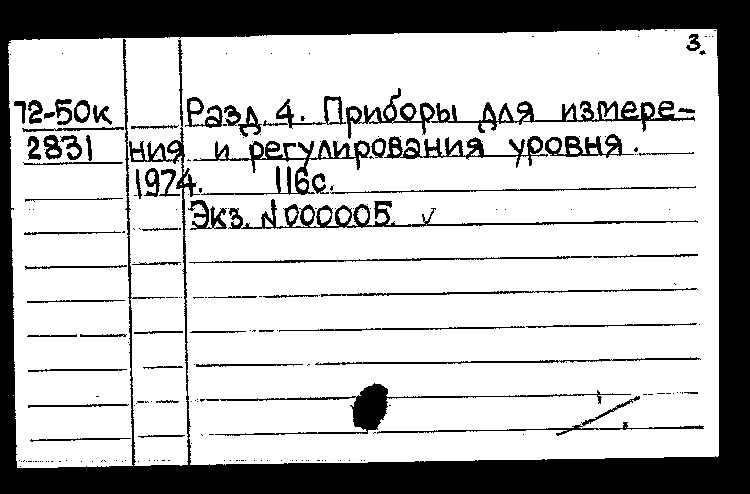 3.
72-50к Разд. 4. Приборы для измере-
2831 ния и регулирования уровня.
1974. 116с.
Экз. N000005. v